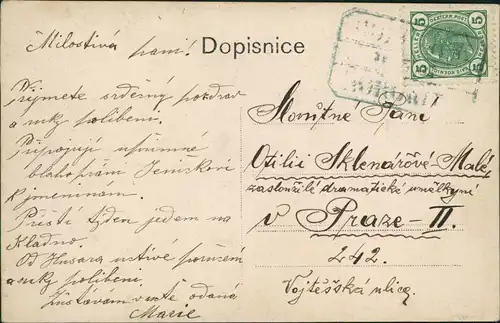 Milostivá paní!
Dopisnice
Přijmete srdečný pozdrav
a ruky políbení.
Připojuji upřímné
blahopřání Jeníčkovi
k jmeninám.
Příští týden jedem na
Kladno.
Od Husara uctivé poručení
a ruky políbení.
Zůstávám v úctě oddaná
Marie
5 5
5 5
Paní
Otilii Sklenářové-Malé,
zasloužilé dramatické umělkyni
v Praze-II.
242.
Vojtěšská ulice.